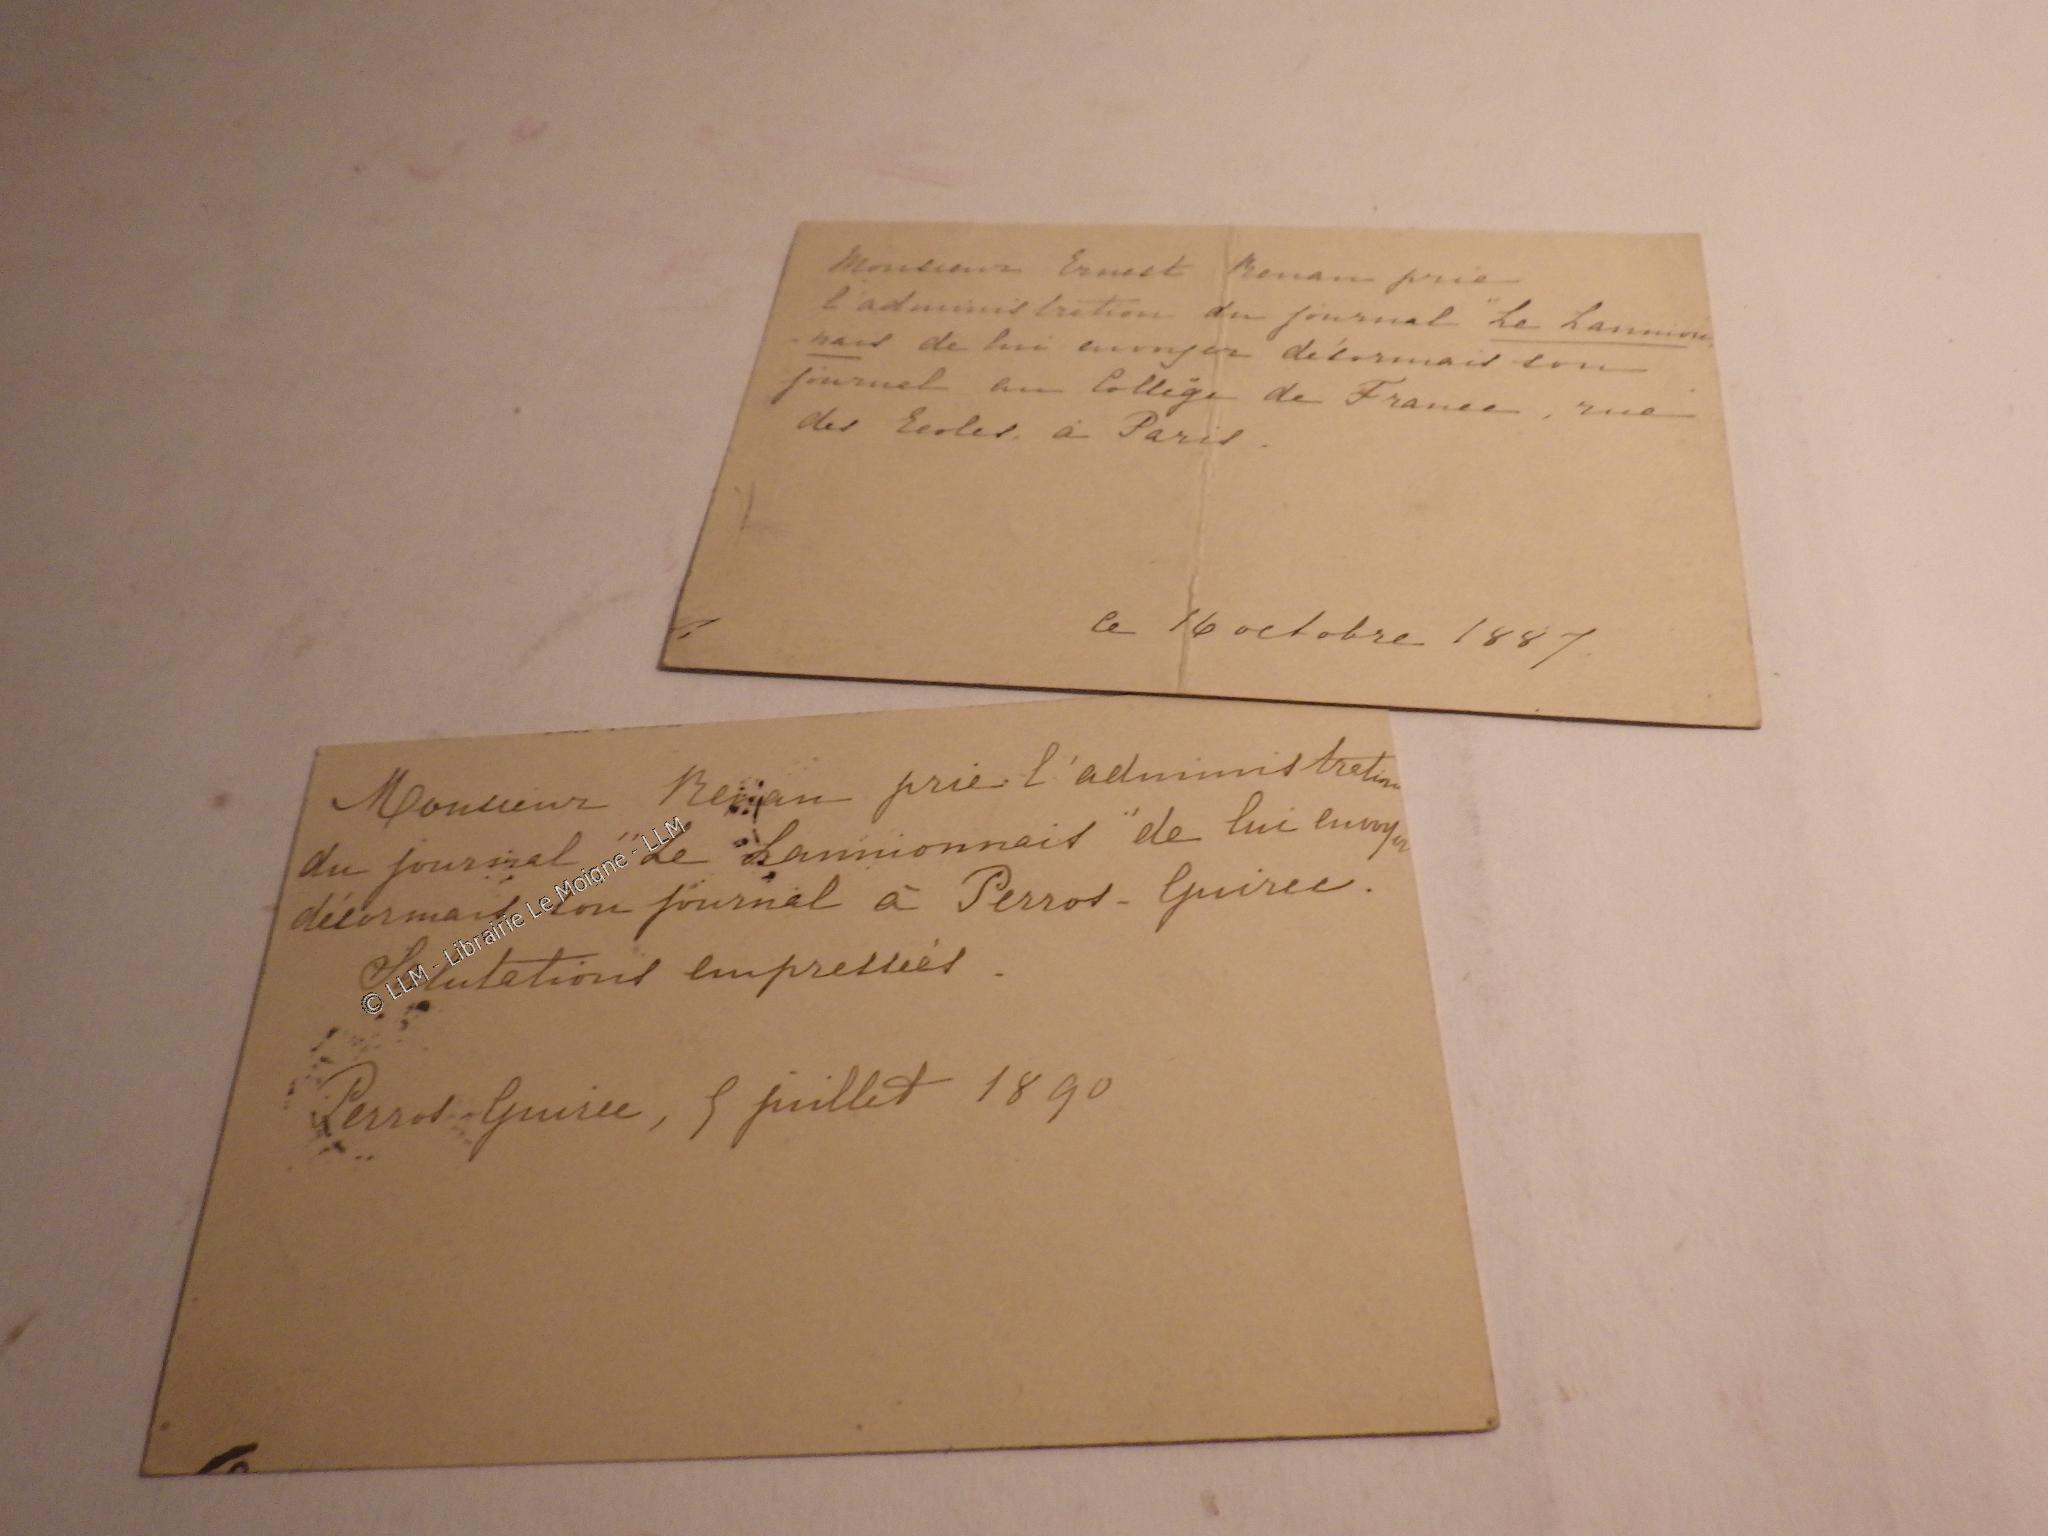 Monsieur Ernest Renan prie
l'administration du journal "Le Lannion
-nais de lui envoyer désormais son
journal au Collège de France, rue
des Ecoles, à Paris.
Ce 16 octobre 1887.
Monsieur Renan prie l'administration
du journal "Le Lannionnais" de lui envoyer
désormais son journal à Perros-Guirec.
Salutations empressées.
Perros-Guirec, 5 juillet 1890
© LLM - Librairie Le Moigne - LLM